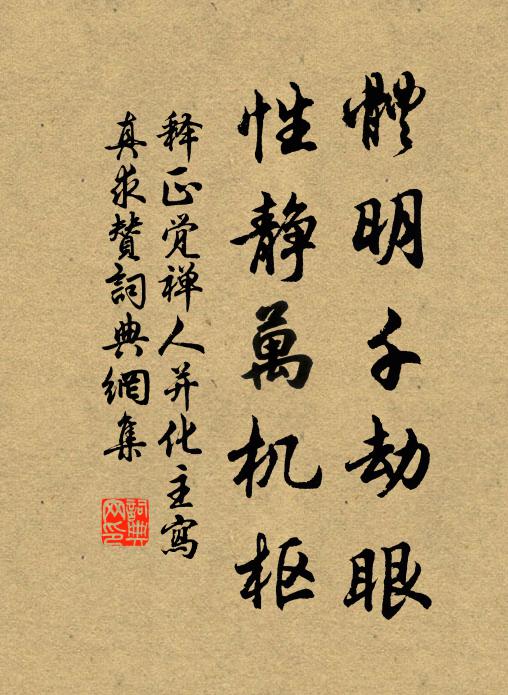 體明千劫眼
性静萬机枢
释正觉禅人并化主寫
真求賛詞典網集
詞典
网印